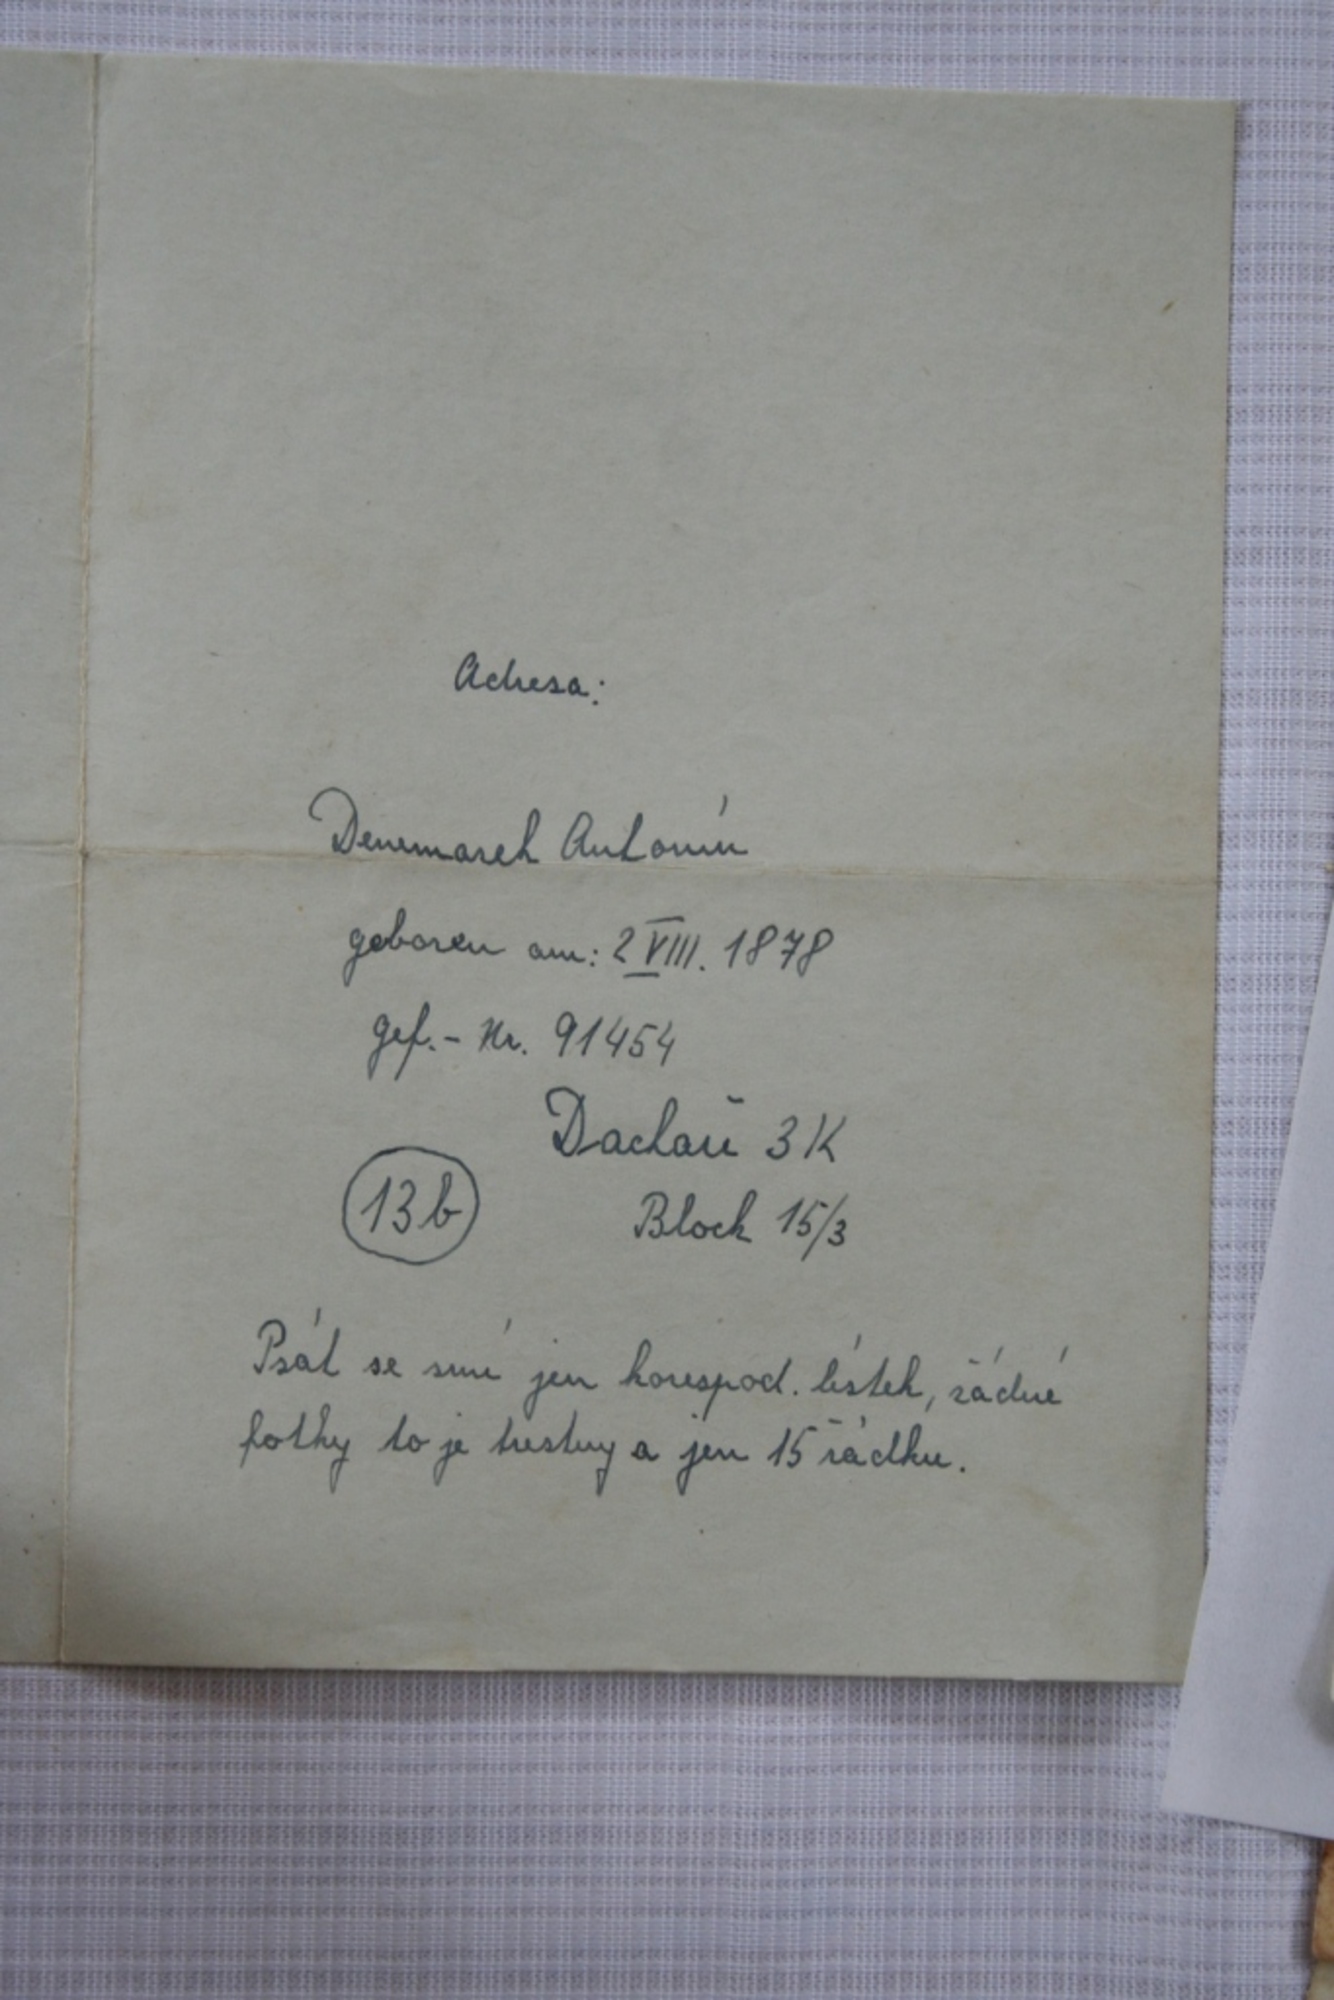 Adresa:
Denemarek Antonín
geboren am: 2 VIII. 1878
gef. - Nr. 91454
Dachaŭ 3 K
13b
Block 15/3
Psát se smí jen korespod. lístek, žádné
fotky to je trestny a jen 15 řádku.